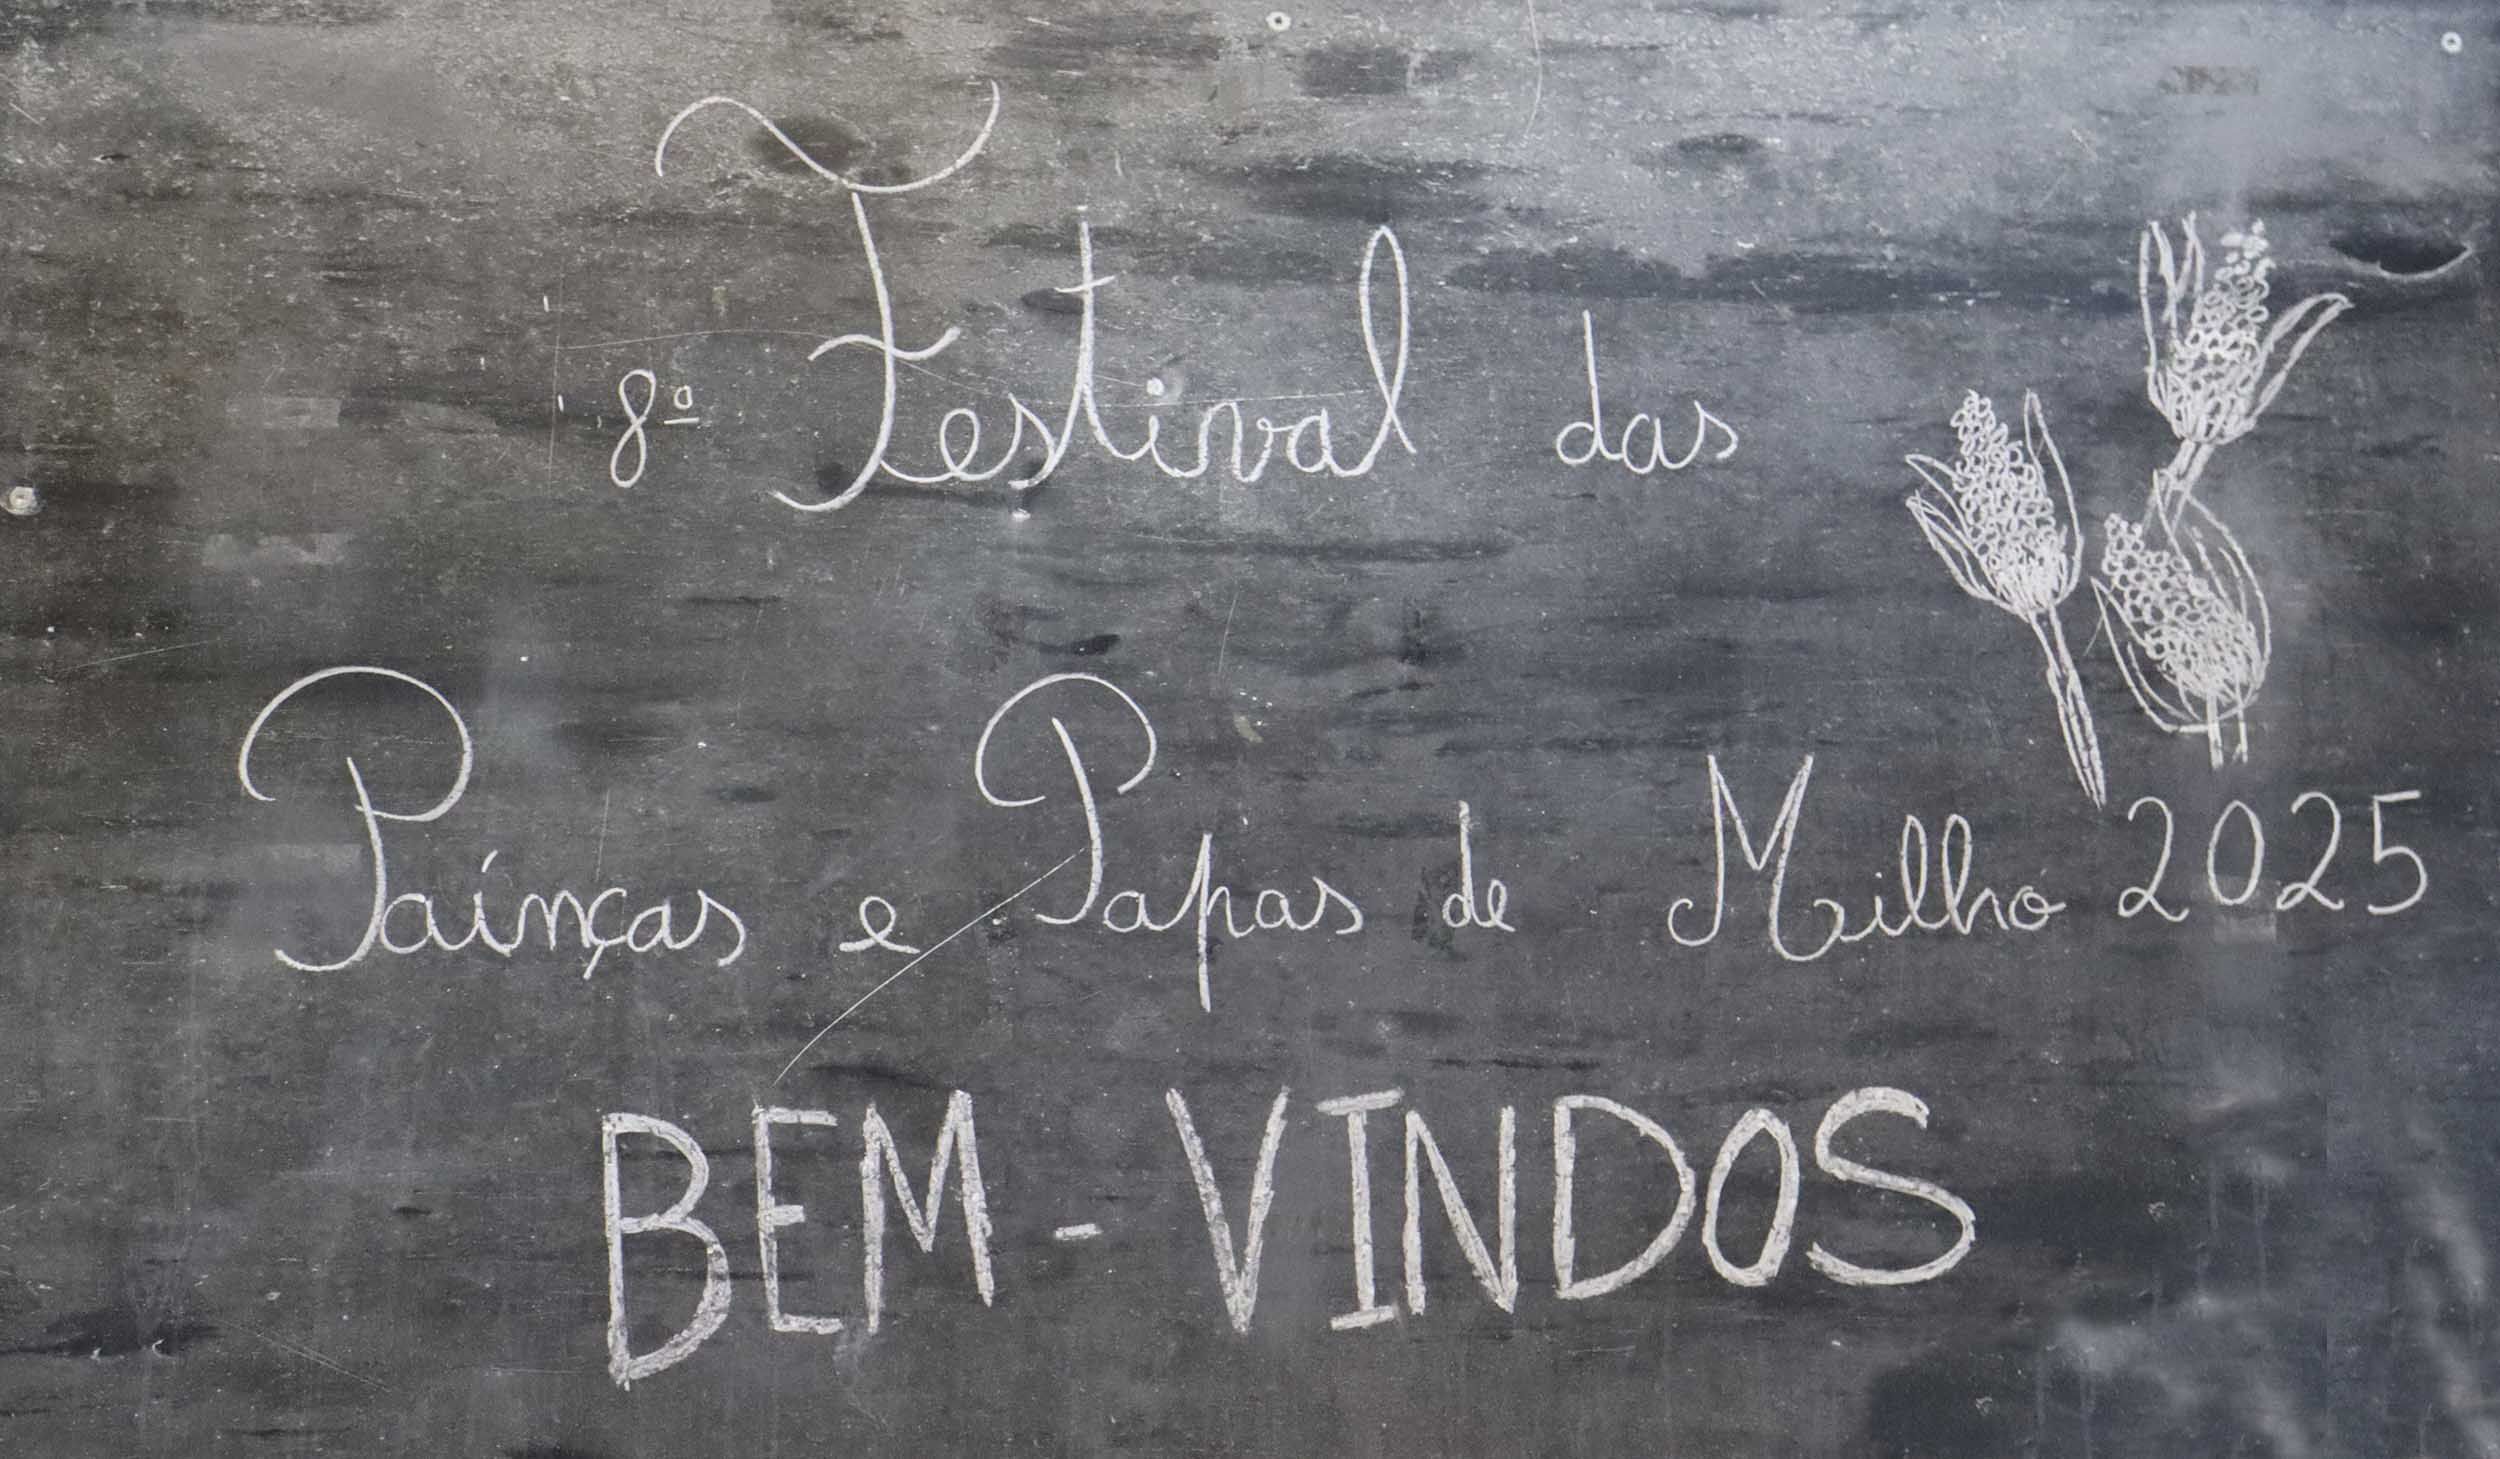 8º Festival das
Paínças e Papas de Milho 2025
BEM-VINDOS